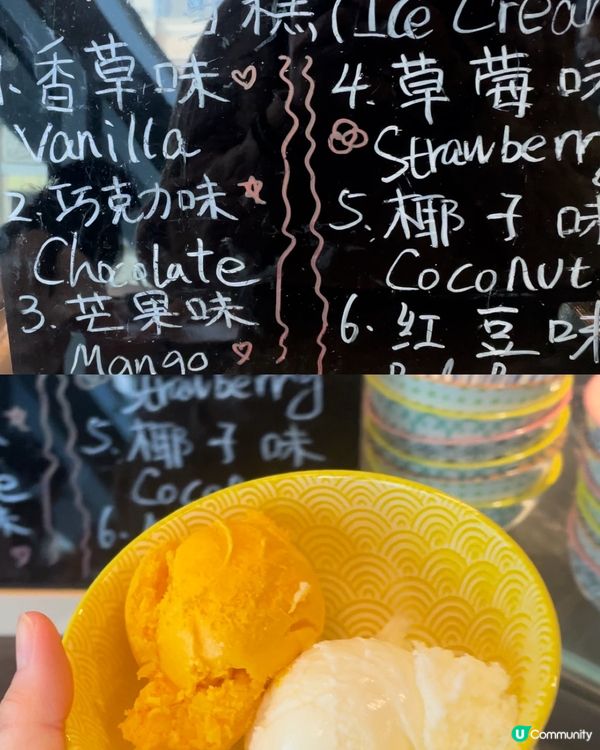 糕 (Ice Cream
1. 香草味
Vanilla
2. 巧克力味
Chocolate
3. 芒果味
Mango
4. 草莓味
Strawberry
5. 椰子味
Coconut
6. 紅豆味
Strawberry
5. 椰子味
Coco
6.
U Community